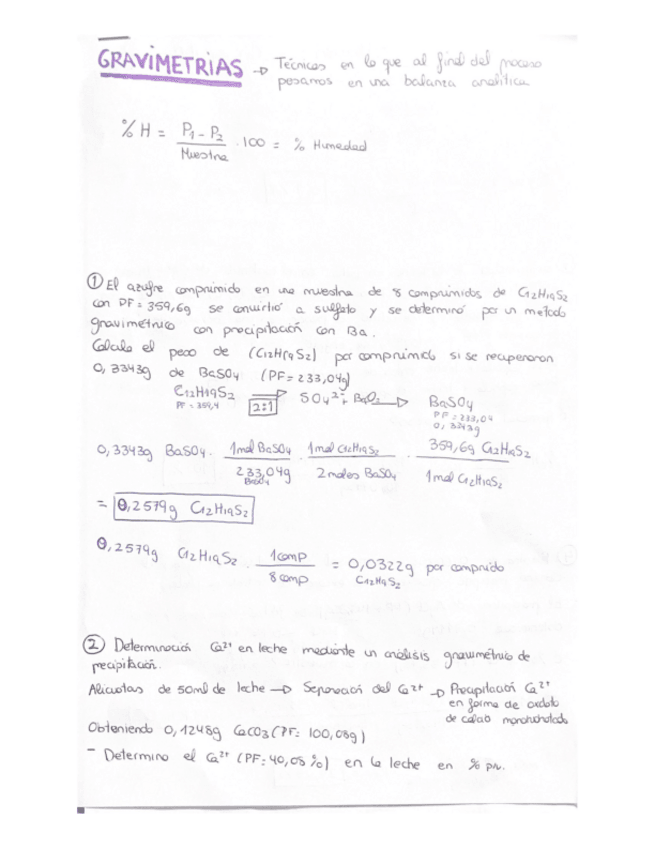 GRAVIMETRIAS → Técnicas en lo que al final del proceso
pesamos en una balanza analítica
% H = P1 - P2 / Muestra · 100 = % Humedad
① El azufre comprimido en una muestra de 8 comprimidos de C12H19S2
con PF = 359,6g se convirtió a sulfato y se determinó por un método
gravimétrico con precipitación con Ba.
Calcula el peso de (C12H19S2) por comprimido si se recuperaron
0,3343g de BaSO4 (PF = 233,04g)
C12H19S2 → 2:1 SO4²⁻ + BaCl2 → BaSO4
PF = 359,4
PF = 233,04
0,3343g
0,3343g BaSO4 · 1mol BaSO4 / 233,04g BaSO4 · 1mol C12H19S2 / 2moles BaSO4 · 359,6g C12H19S2 / 1mol C12H19S2
= 0,2579g C12H19S2
0,2579g C12H19S2 · 1comp / 8comp = 0,0322g C12H19S2 por comprido
② Determinación Ca²⁺ en leche mediante un análisis gravimétrico de
precipitación.
Alicuotas de 50ml de leche → Separación del Ca²⁺ → Precipitación Ca²⁺
en forma de oxalato
de calcio monohidratado
Obteniendo 0,1248g CaCO3 (PF: 100,08g)
- Determino el Ca²⁺ (PF: 40,08%) en la leche en % p/v.